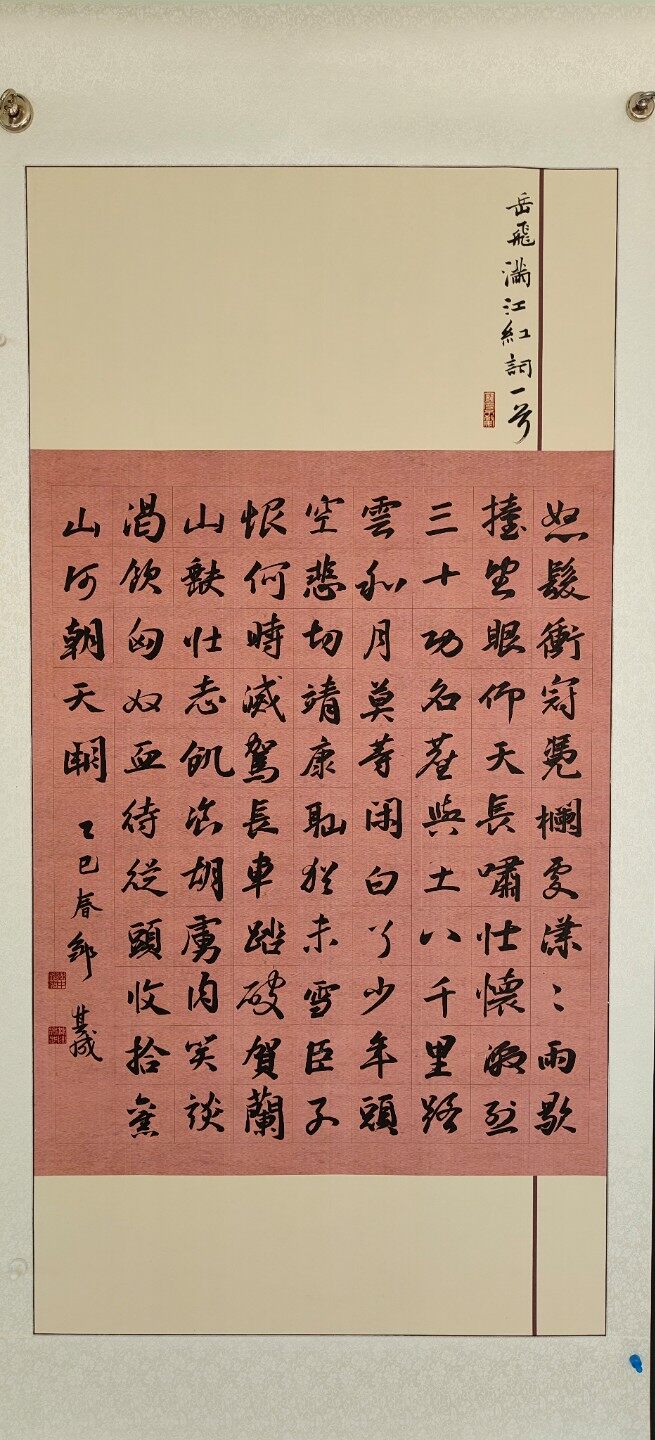 岳飛滿江紅詞一首
怒髮衝冠凭欄處瀟〻雨歇
擡望眼仰天長嘯壯懷激烈
三十功名塵與土八千里路
雲和月莫等閑白了少年頭
空悲切靖康恥猶未雪臣子
恨何時滅駕長車踏破賀蘭
山缺壯志飢湌胡虜肉笑談
渴飲匈奴血待從頭收拾舊
山河朝天闕 乙巳春